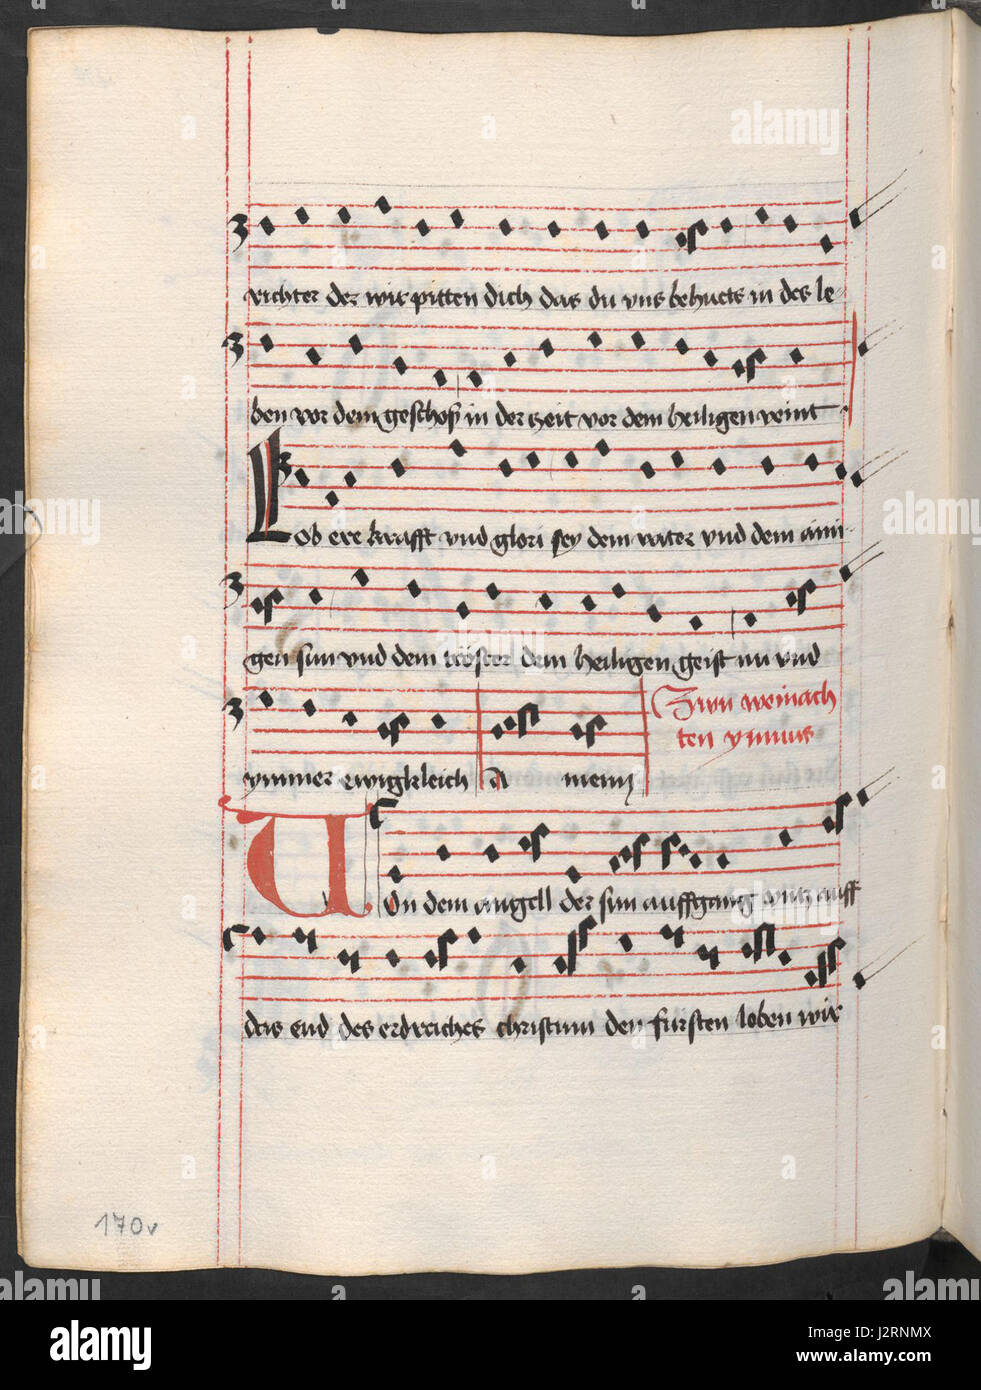 richter der wir pitten dich das du vns behuets in des le-
ben vor dem geschos in der zeit vor dem heiligen veint
Lob ere krafft vnd glori sey dem vater vnd dem aini-
gen sun vnd dem tröster dem heiligen geist nu vnd
ymmer ewigkleich A menn
Zwn weinach
ten ymnus
Von dem angell der sun auffgang vntz auff
das end des erdreiches christum den fürsten loben wir
170v
alamy
alamy
alamy
a
a
a
a
alamy
Image ID: J2RNMX
www.alamy.com